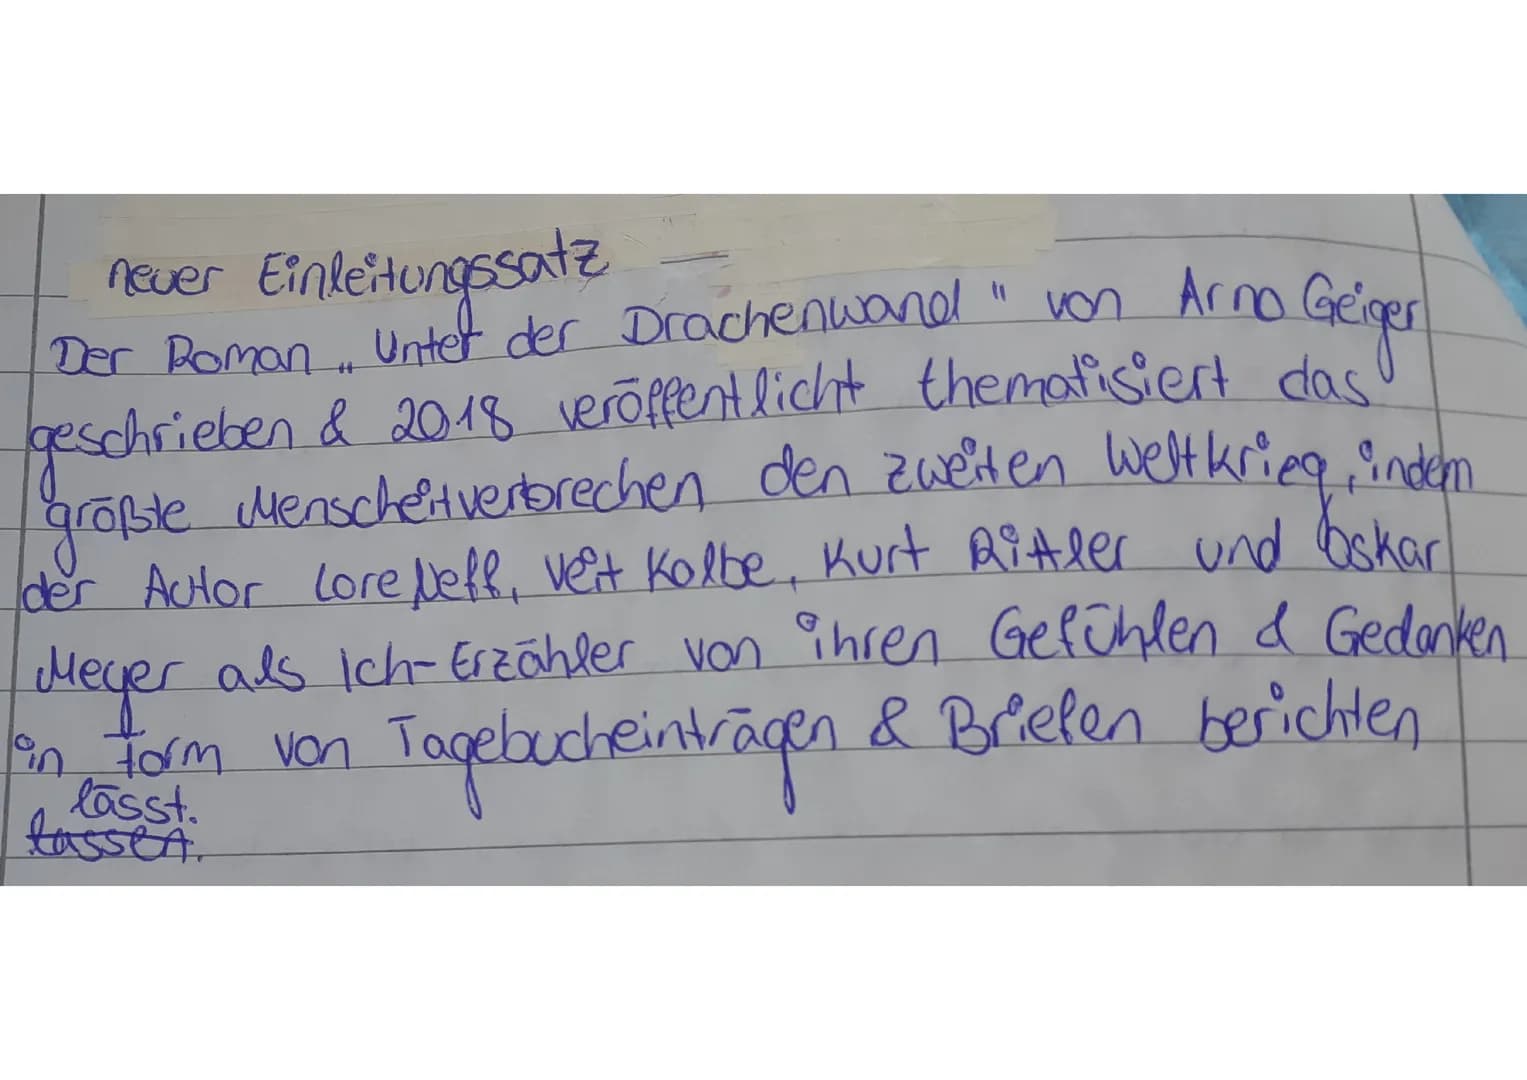 neuer Einleitungssatz
Der Roman „Unter der Drachenwand" von Arno Geiger
geschrieben & 2018 veröffentlicht thematisiert das
größte Menscheitverbrechen den zweiten Weltkrieg, indem
der Autor Lore Neff, Veit Kolbe, Kurt Ritler und Oskar
Meyer als Ich-Erzähler von ihren Gefühlen & Gedanken
in Form von Tagebucheinträgen & Briefen berichten
lässt.
lassen.